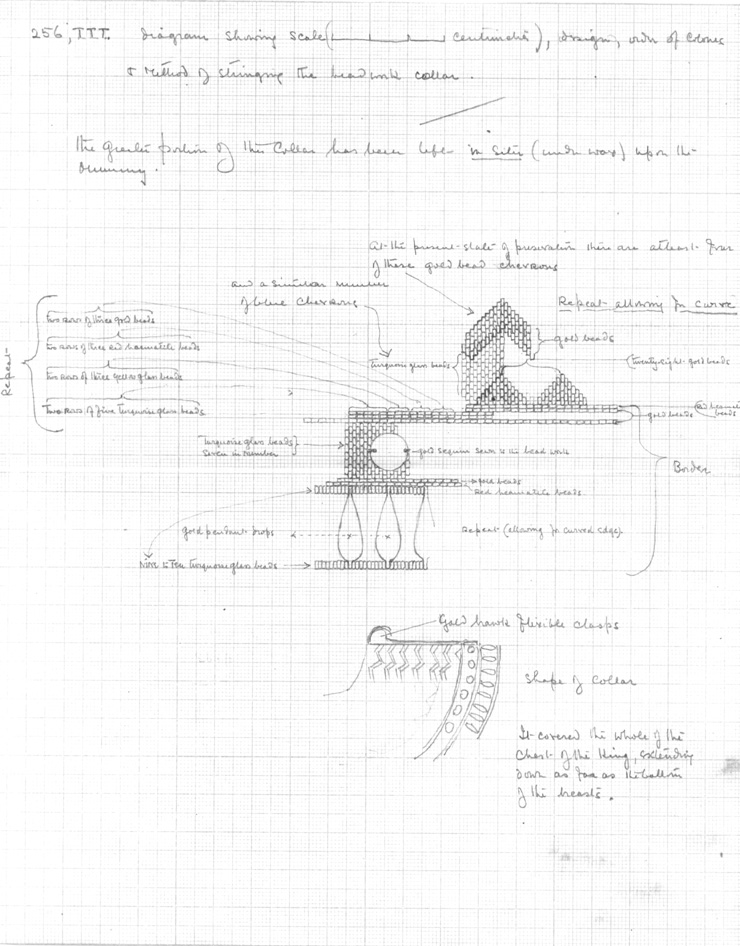 256, TTT. Diagram showing scale ( centimètres), design, order of colours
& method of stringing the beadwork collar.
The greater portion of this Collar has been left in situ (under wax) upon the
mummy.
At the present state of preservation there are atleast four
of these gold bead chevrons
and a similar number
of blue Chevrons
Repeat allowing for curve
Repeat
Two rows of three gold beads
two rows of three red haematite beads
two rows of three yellow glass beads
Two rows of five turquoise glass beads
gold beads
Turquoise glass beads
(twenty-eight gold beads
gold beads
red haematite
beads
Turquoise glass beads
seven in number
gold sequin sewn to the bead work
Border
gold beads
Red haematite beads
gold pendant drops
Repeat (allowing for curved edge)
Nine to Ten turquoise glass beads
Gold hawk flexible clasps
Shape of Collar
It covered the whole of the
chest of the King, extending
down as far as the
of the breasts.